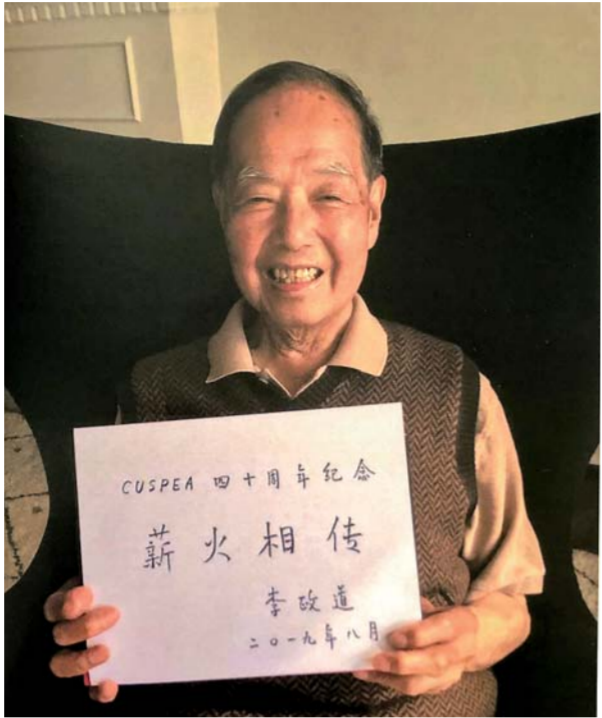 CUSPEA 四十周年纪念
薪火相传
李政道
二〇一九年八月